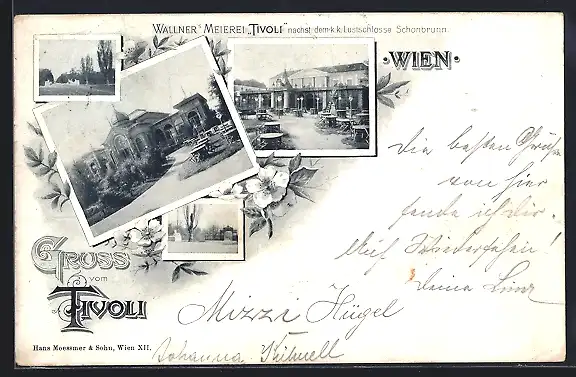 WALLNER'S MEIEREI „TIVOLI" nächst dem k.k. Lustschlosse Schönbrunn.
·WIEN·
Die besten Grüße
von hier
sende ich Dir.
Auf Wiedersehen!
Deine
GRUSS
vom
TIVOLI
Mizzi Hügel
Johanna
Hans Moessmer & Sohn, Wien XII.